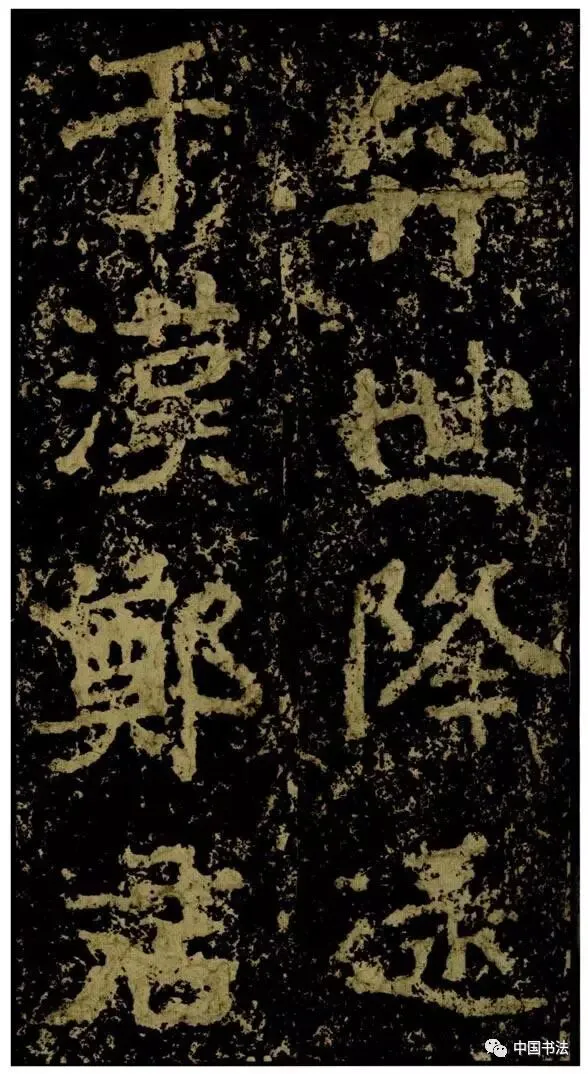 弈世降逮
于漢鄭君
中国书法